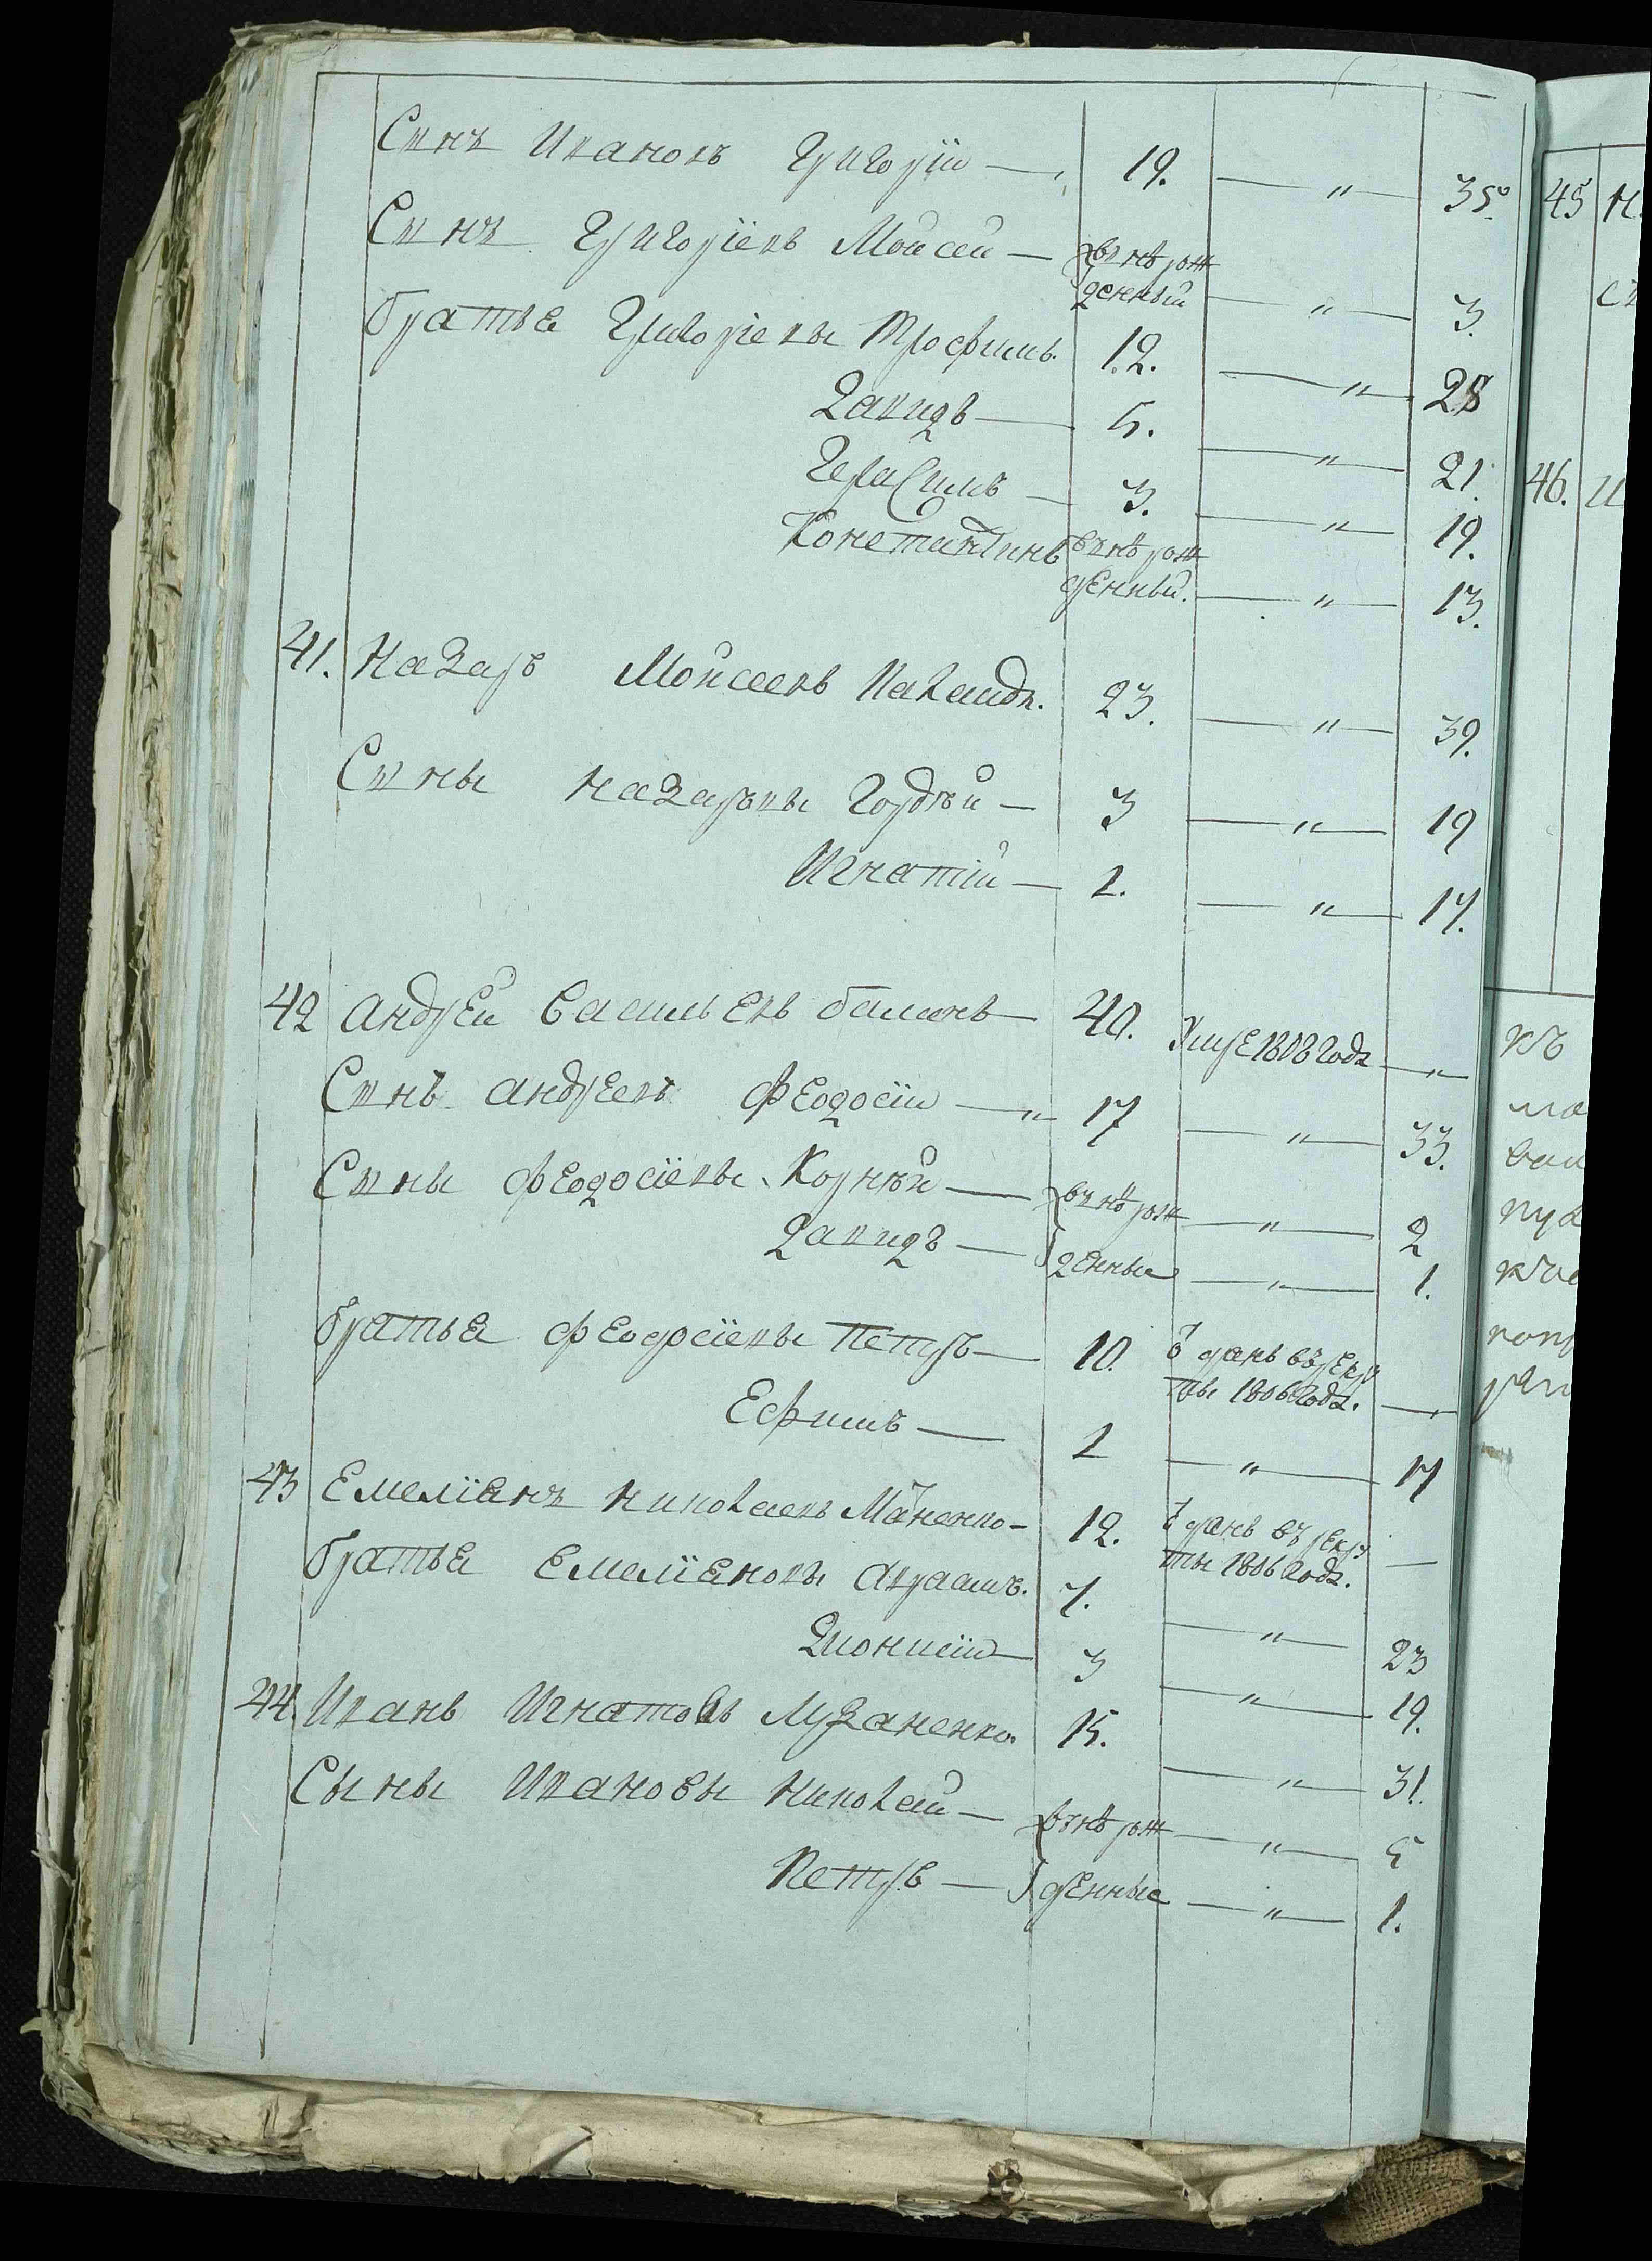 Сынъ Ивановъ Григорій — 19. — " — 35.
Сынъ Григоріевъ Мойсей — внѣ рож
денный — " — 3.
братья Григоріевы Трофимъ. 12. — " — 28
Давидъ — 5. — " — 21.
Герасимъ — 3. — " — 19.
Константинъ внѣ рож
денный. — " — 13.
41. Назаръ Мойсеевъ 23. — " — 39.
Сыны Назаровы Гордѣй — 3 — " — 19
Игнатій — 1. — " — 17.
42 Андрей Васильевъ баланъ — 40. Умре 1808 года — " —
Сынъ Андреевъ Феодосій — " — 17 — " — 33.
Сыны Феодосіевы Корнѣй — внѣ рож — " — 2
Давидъ — денные — " — 1.
братья Феодосіевы Петръ — 10. Отданъ въ рекру
ты 1806 года. —
Ефимъ — 1 — " — 17
43 Емеліянъ Николаевъ — 12. Отданъ въ рекру
ты 1806 года. —
братья Емеліяновы Авраамъ. 7. — " — 23
Діонисій — 3 — " — 19.
44. Иванъ Игнатовъ Лузаненко. 15. — " — 31.
Сыны Ивановы Николай — внѣ рож — " — 5
Петръ — денные — " — 1.
45 Н
46. И